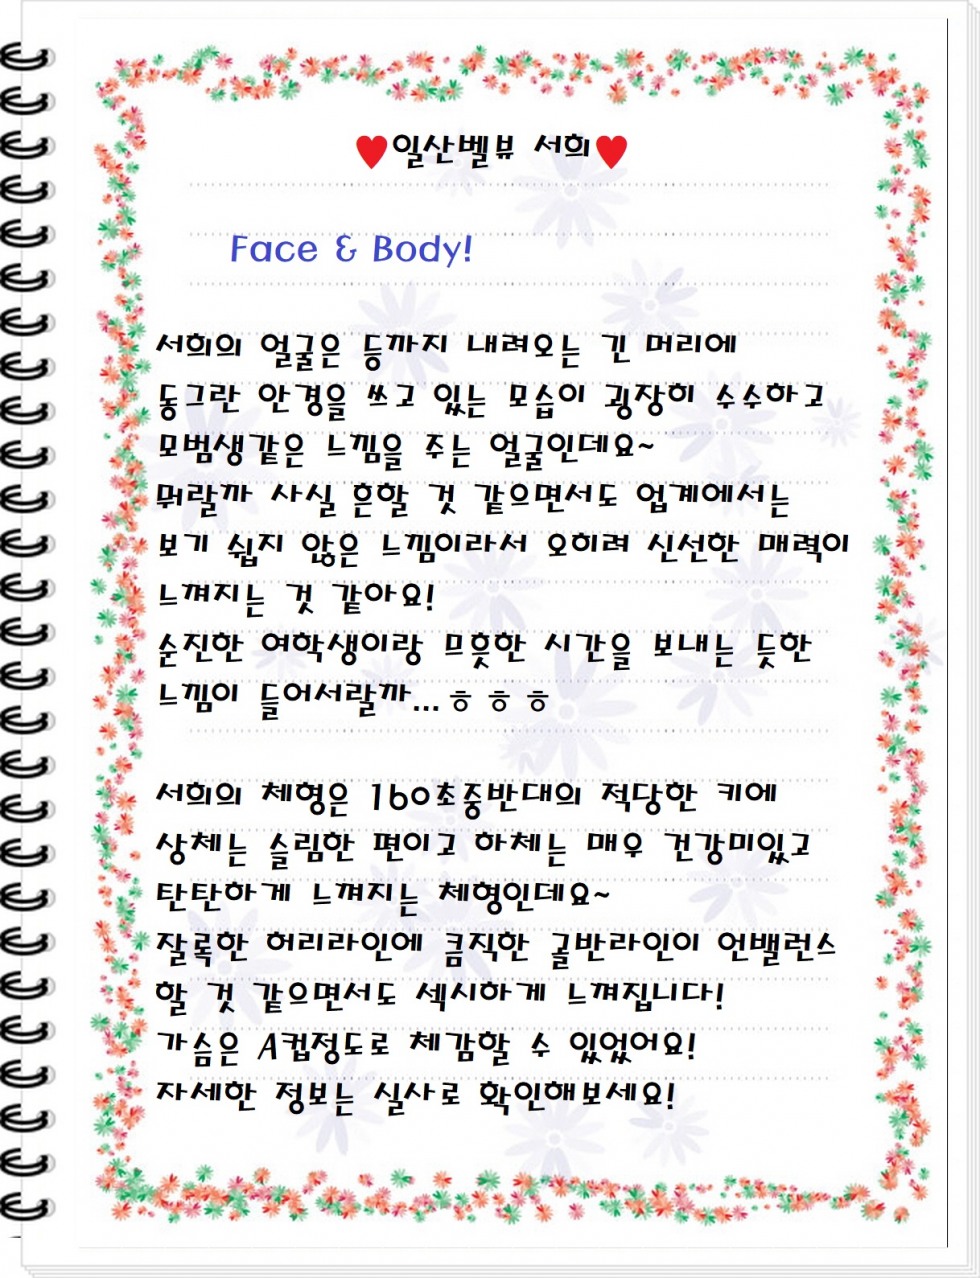 ♥일산벨뷰 서희♥
Face & Body!
서희의 얼굴은 등까지 내려오는 긴 머리에
동그란 안경을 쓰고 있는 모습이 굉장히 수수하고
모범생같은 느낌을 주는 얼굴인데요~
뭐랄까 사실 흔할 것 같으면서도 업계에서는
보기 쉽지 않은 느낌이라서 오히려 신선한 매력이
느껴지는 것 같아요!
순진한 여학생이랑 므흣한 시간을 보내는 듯한
느낌이 들어서랄까...ㅎㅎㅎ
서희의 체형은 160초중반대의 적당한 키에
상체는 슬림한 편이고 하체는 매우 건강미있고
탄탄하게 느껴지는 체형인데요~
잘록한 허리라인에 큼직한 골반라인이 언밸런스
할 것 같으면서도 섹시하게 느껴집니다!
가슴은 A컵정도로 체감할 수 있었어요!
자세한 정보는 실사로 확인해보세요!